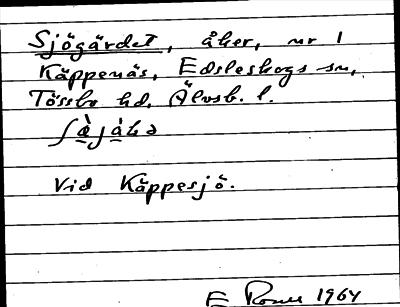 Sjögärdet, åker, nr 1
Käppenäs, Edsleskogs sn,
Tössbo hd, Älvsb. l.
Vid Käppesjö.
E 1964